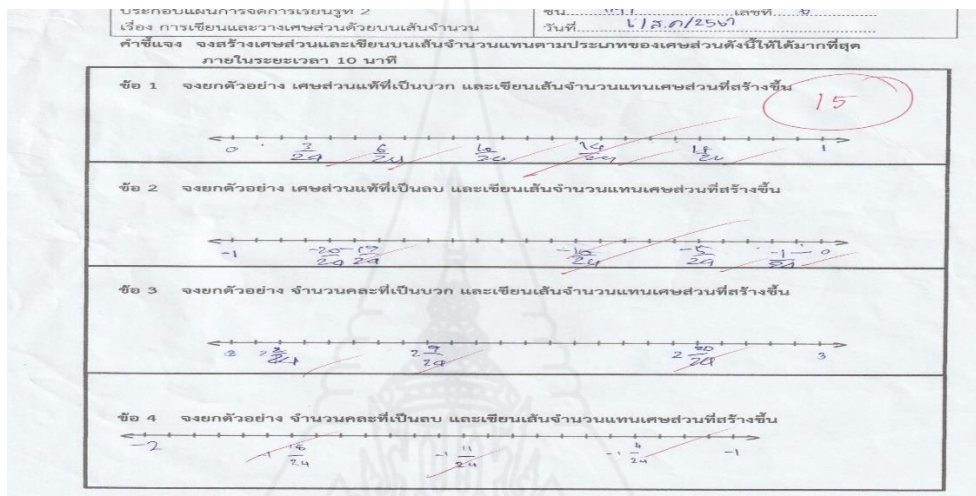 ประกอบแผนการจัดการเรียนรู้ที่ 2
เรื่อง การเขียนและวางเศษส่วนด้วยบนเส้นจำนวน
ชั้น เลขที่
วันที่
คำชี้แจง จงสร้างเศษส่วนและเขียนบนเส้นจำนวนแทนตามประเภทของเศษส่วนดังนี้ให้ได้มากที่สุด
ภายในระยะเวลา 10 นาที
ข้อ 1 จงยกตัวอย่าง เศษส่วนแท้ที่เป็นบวก และเขียนเส้นจำนวนแทนเศษส่วนที่สร้างขึ้น
15
0 3/24 6/24 1
ข้อ 2 จงยกตัวอย่าง เศษส่วนแท้ที่เป็นลบ และเขียนเส้นจำนวนแทนเศษส่วนที่สร้างขึ้น
-1 -20/24 -19/24 -10/24 -5/24 -1/24 0
ข้อ 3 จงยกตัวอย่าง จำนวนคละที่เป็นบวก และเขียนเส้นจำนวนแทนเศษส่วนที่สร้างขึ้น
2 2 9/24 2 20/24 3
ข้อ 4 จงยกตัวอย่าง จำนวนคละที่เป็นลบ และเขียนเส้นจำนวนแทนเศษส่วนที่สร้างขึ้น
-2 -1 11/24 -1 4/24 -1